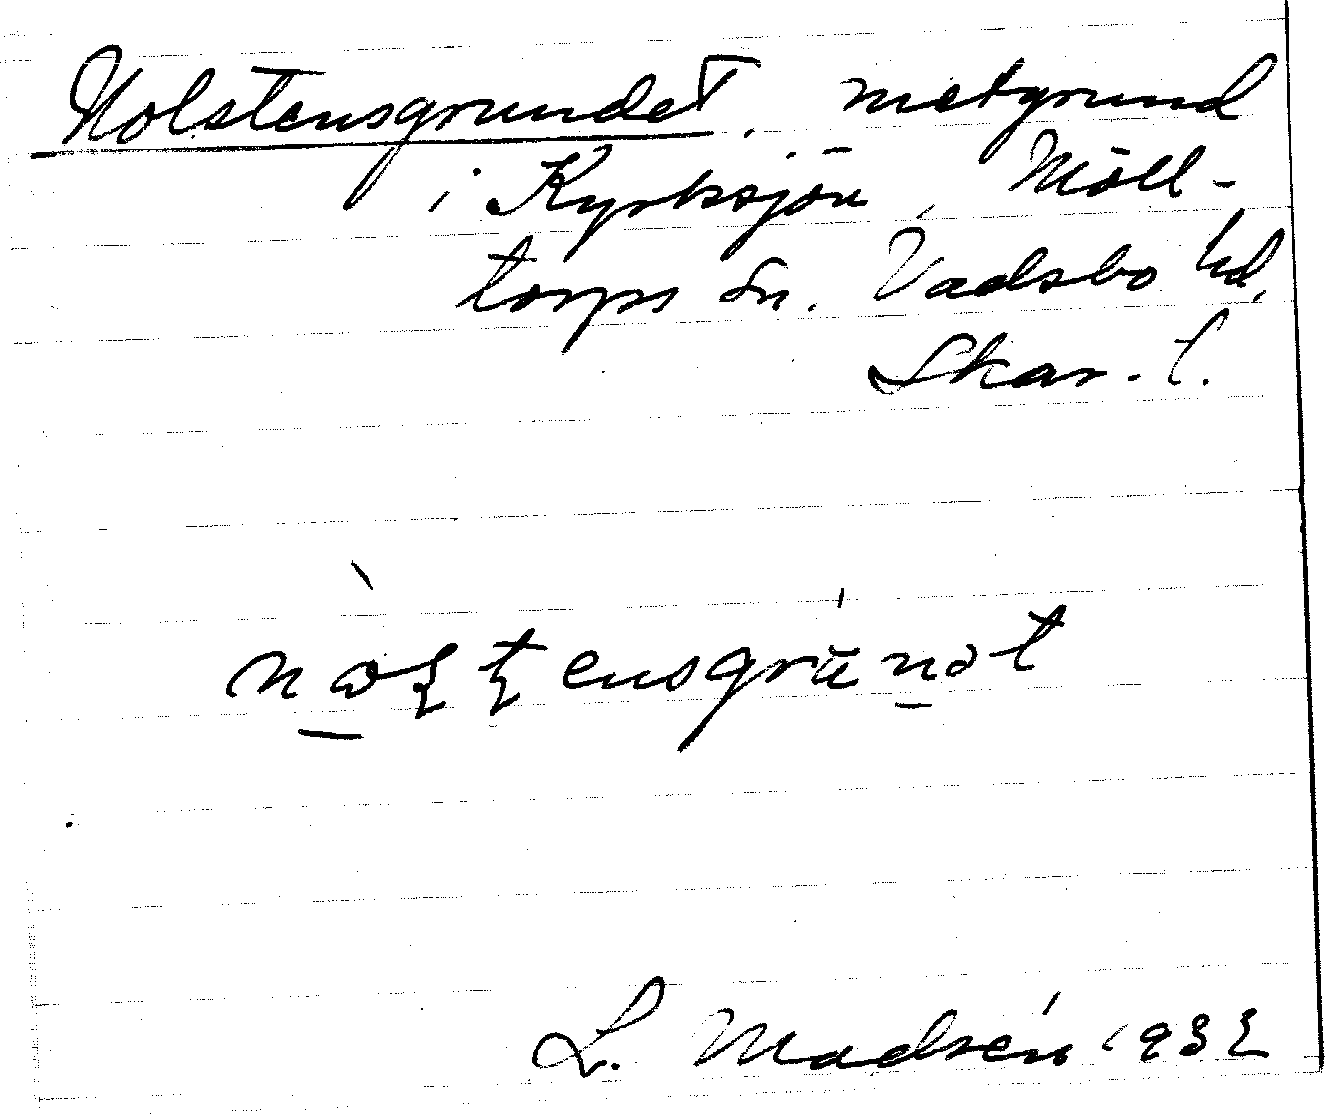 Nolstensgrundet. metgrund
i Kyrksjön, Möll-
torps sn. Vadsbo hd,
Skar. l.
L. Madsén 1932